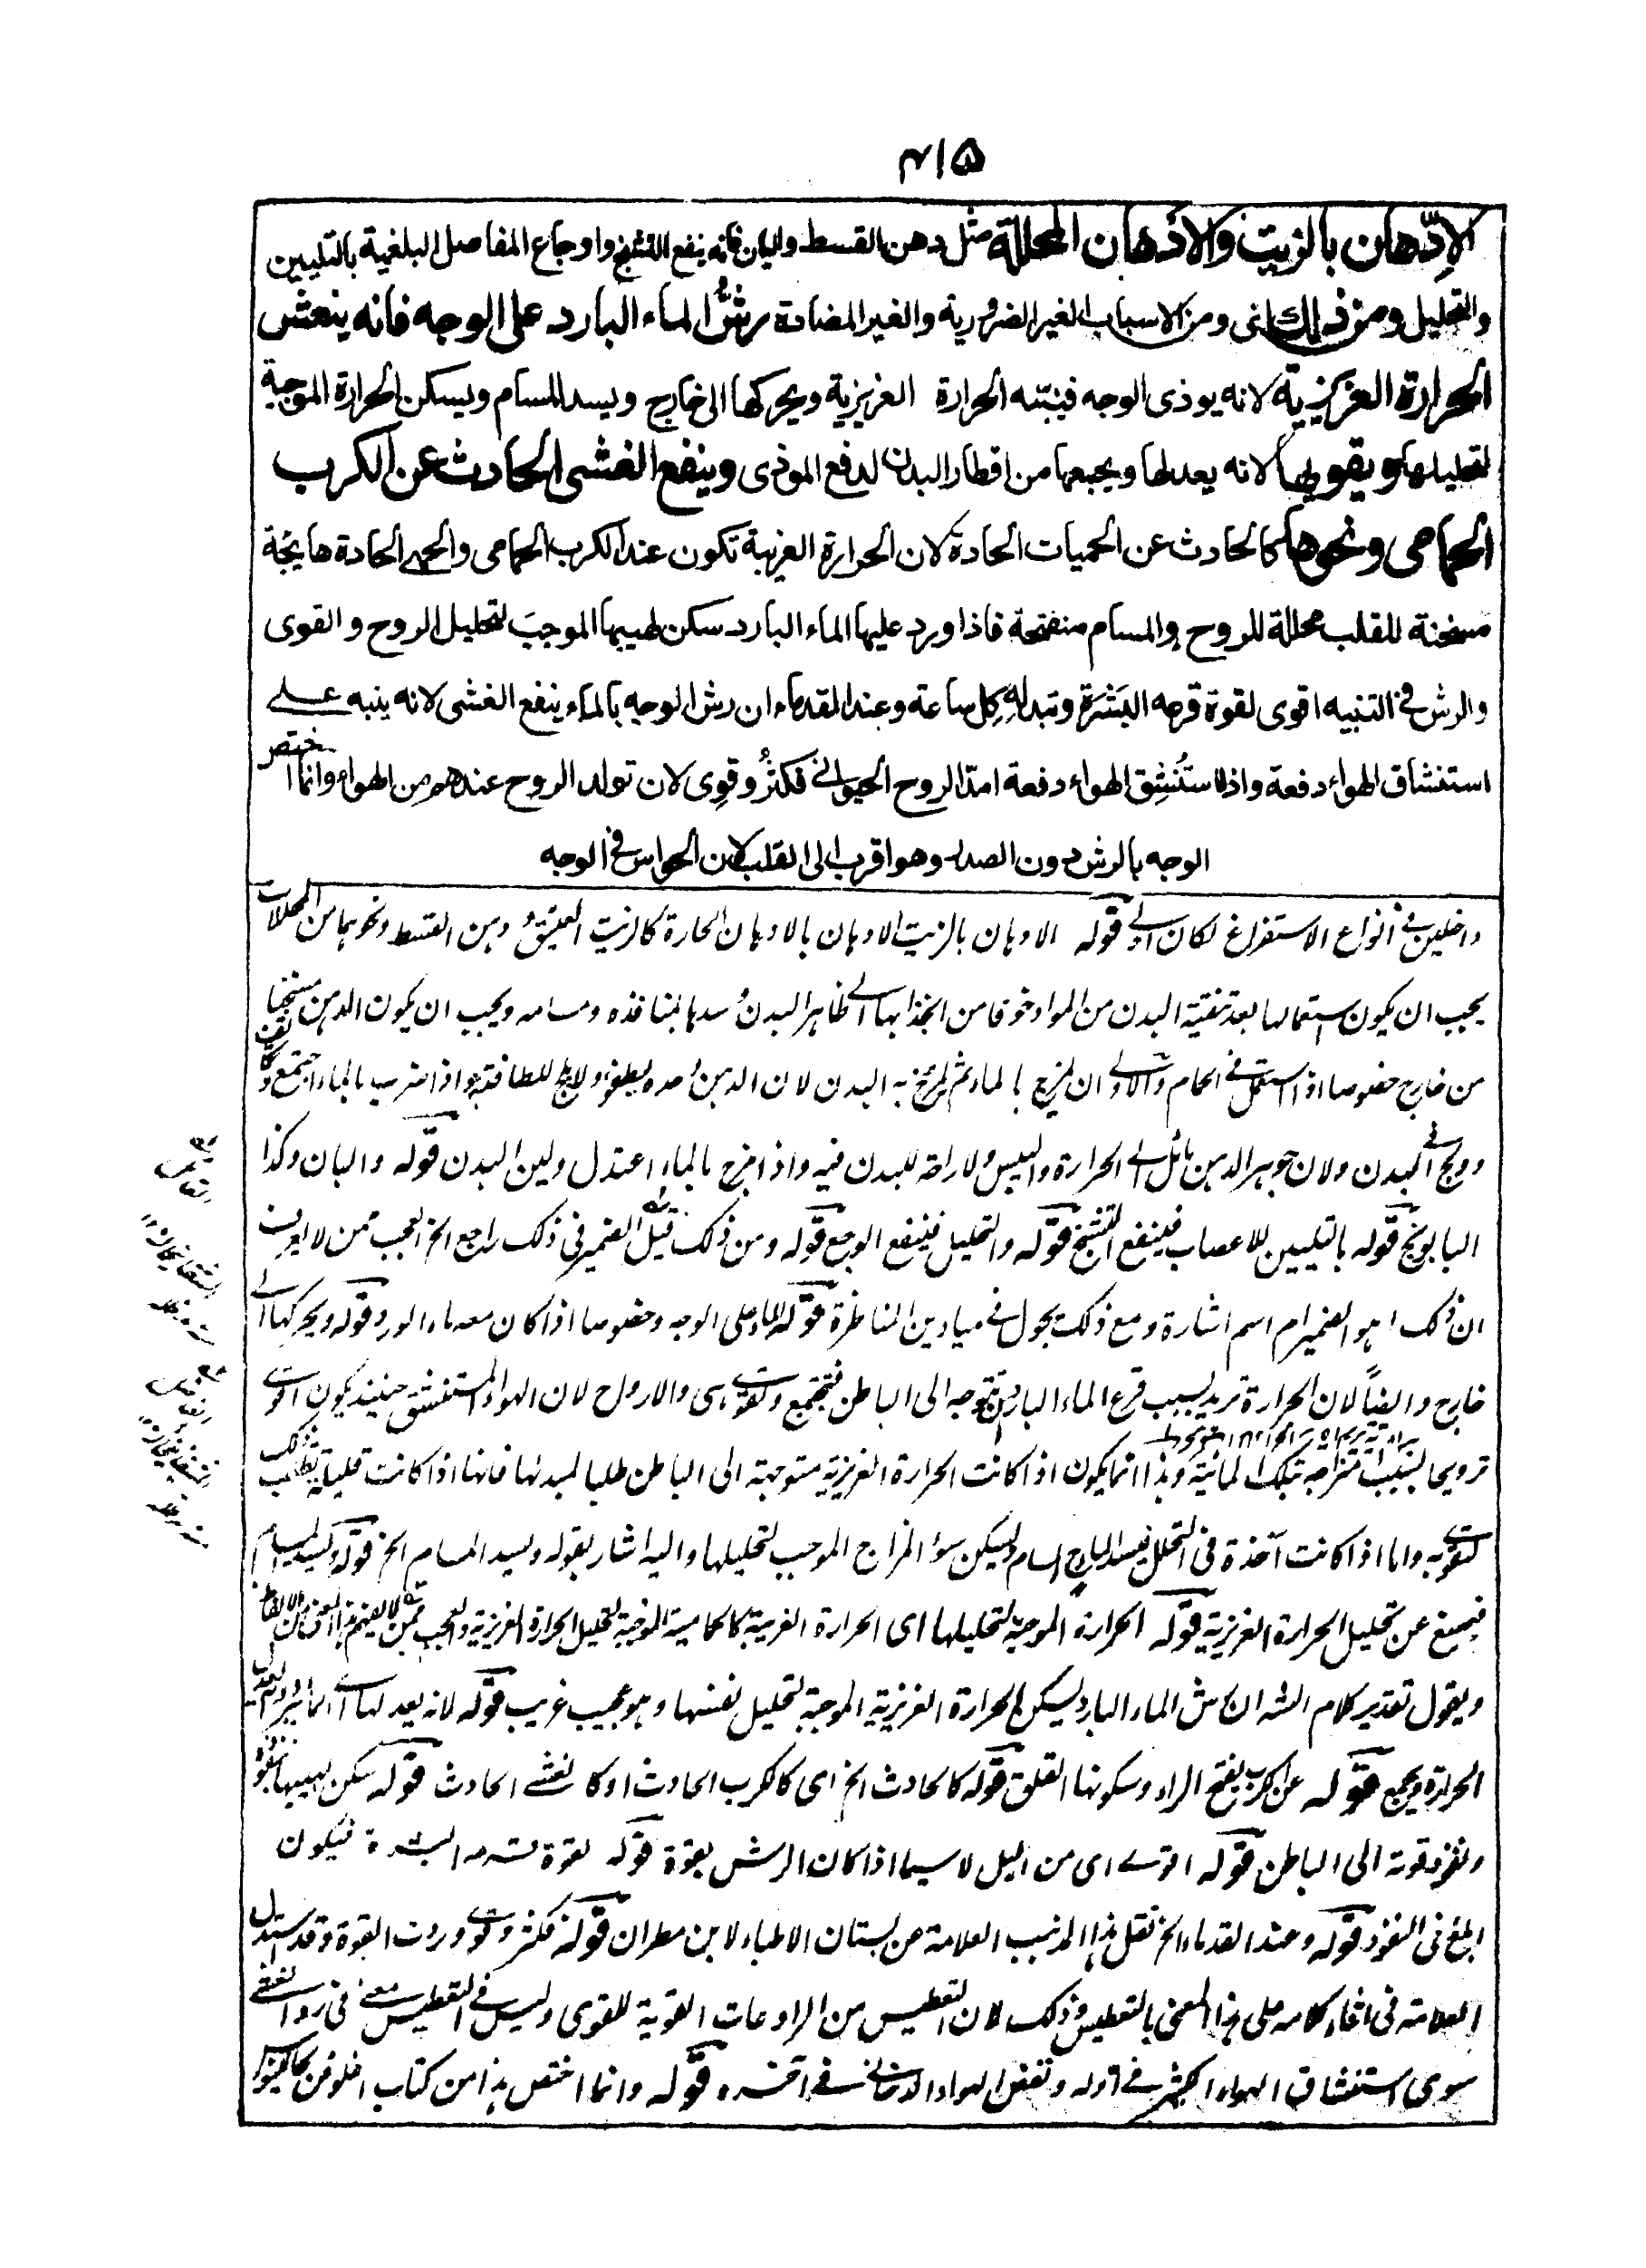 ۴۱۵
الادّهان بالزيت والادهان المحللة مثل دهن القسط والبان فانه ينفع التشنج واوجاع المفاصل البلغمية بالتليين
والتحليل ومن ذلك اى ومن الاسباب الغير الضرورية والغير المضادة رشُّ الماء البارد على الوجه فانه ينعش
الحرارة الغريزية لانه يوذى الوجه فينبّه الحرارة الغريزية ويحركها الى خارج ويسد المسام ويسكن الحرارة الموجبة
لتحليلها ويقويها لانه يعدلها ويجمعها من اقطار البدن لدفع الموذى وينفع الغشى الحادث عن الكرب
الحمامى ونحوها كالحادث عن الحميات الحادة لان الحرارة الغريبة تكون عند الكرب الحمامى والحمى الحادة هايجة
مسخنة للقلب محللة للروح والمسام منفتحة فاذا ورد عليها الماء البارد سكن لهيبها الموجب لتحليل الروح و القوى
والرش فى التنبيه اقوى لقوة قرعه البَشَرَة وتبدله كل ساعة وعند القدماء ان رش الوجه بالماء ينفع الغشى لانه ينبه على
استنشاق الهواء دفعة واذا استُنشِق الهواء دفعة امدّ الروح الحيوانى فكثُر وقوِى لان تولد الروح عندهم من الهواء وانما اختص
الوجه بالرش دون الصدر وهو اقرب الى القلب لان الحواس فى الوجه
داخلين فى انواع الاستفراغ لكان اولى قوله الادهان بالزيت الادهان بالادهان الحارة كالزيت العتيق ودهن القسط ونحوهما من المحللات
يجب ان يكون استعمالها بعد تنقية البدن من المواد خوفا من انجذابها الى ظاهر البدن وسدها لمنافذه ومسامه ويجب ان يكون الدهن مسخنا
من خارج خصوصا اذا استعمل فى الحمام والاولى ان يمزج بالماء ثم يمرخ به البدن لان الدهن وحده يطفو ولا يلج للطافته واذا ضرب بالماء اجتمع
وولج فى البدن ولان جوهر الدهن مائل الى الحرارة واليبس ولا راحة للبدن فيه واذا مزج بالماء اعتدل ولين البدن قوله والبان وكذا
البابونج قوله بالتليين للاعصاب فينفع التشنج قوله والتحليل فينفع الوجع قوله ومن ذلك قيل الضمير فى ذلك راجع الخ العجب ممن لا يعرف
ان ذلك اهو الضمير ام اسم اشارة ومع ذلك يجول فى ميادين المناظرة قوله الماء على الوجه وخصوصا اذا كان معه ماء الورد قوله ويحركها الى
خارج وايضاً لان الحرارة تريد بسبب قرع الماء البارد تتوجه الى الباطن فتجتمع وتقوى هى والارواح لان الهواء المستنشق حينئذ يكون اقوى
ترويحا بسبب امتزاجه بتلك المائية وهذا انما يكون اذا كانت الحرارة الغريزية متوجهة الى الباطن طلبا لمبدئها فانها اذا كانت قليلة تطلب ذلك
لتقوى به واما اذا كانت آخذة فى التحلل فيسد البارد المسام ويسكن سوء المزاج الموجب لتحليلها واليه اشار بقوله ويسد المسام الخ قوله ويسد المسام
فيمنع عن تحليل الحرارة الغريزية قوله الحرارة الموجبة لتحليلها اى الحرارة الغريبة كالحمامية الموجبة لتحليل الحرارة الغريزية والعجب ممن لا يفهم هذا المعنى
ويقول تقدير كلام الشه ان رش الماء البارد يسكن الحرارة الغريزية الموجبة لتحليل نفسها وهو عجيب غريب قوله لانه يعدلها اى الماء
الحرارة ويجمع قوله عن الكرب بفتح الراء وسكونها القلق قوله كالحادث الخ اى كالكرب الحادث او كالغشى الحادث قوله سكن لهيبها
ونفوذ قوته الى الباطن قوله اقوى اى من البل لا سيما اذا كان الرش بقوة قوله لقوة قرعه البشرة فيكون
ابلغ فى النفوذ قوله وعند القدماء الخ نقل هذا المذهب العلامة عن بستان الاطباء لابن مطران قوله فكثر وقوى وردت القوة وقد استدل
العلامة فى اثناء كلامه على هذا المعنى بالتعطيس وذلك لان التعطيس من الرادعات القوية للقوى وليس فى التعطيس معنى فى رد الغشى
سوى استنشاق الهواء الكثير فى اوله ونفض الهواء الدخانى فى آخره قوله وانما اختص هذا من كتاب افلوطرخس